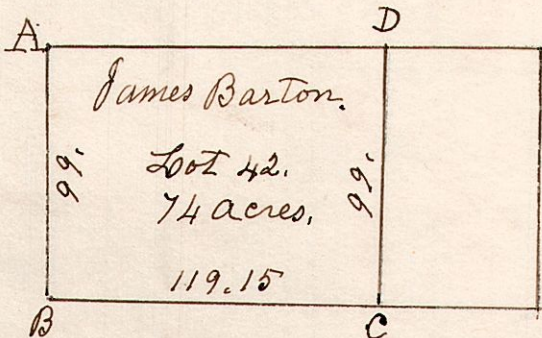 A D
James Barton.
99. Lot 42. 99.
74 acres.
119.15
B C